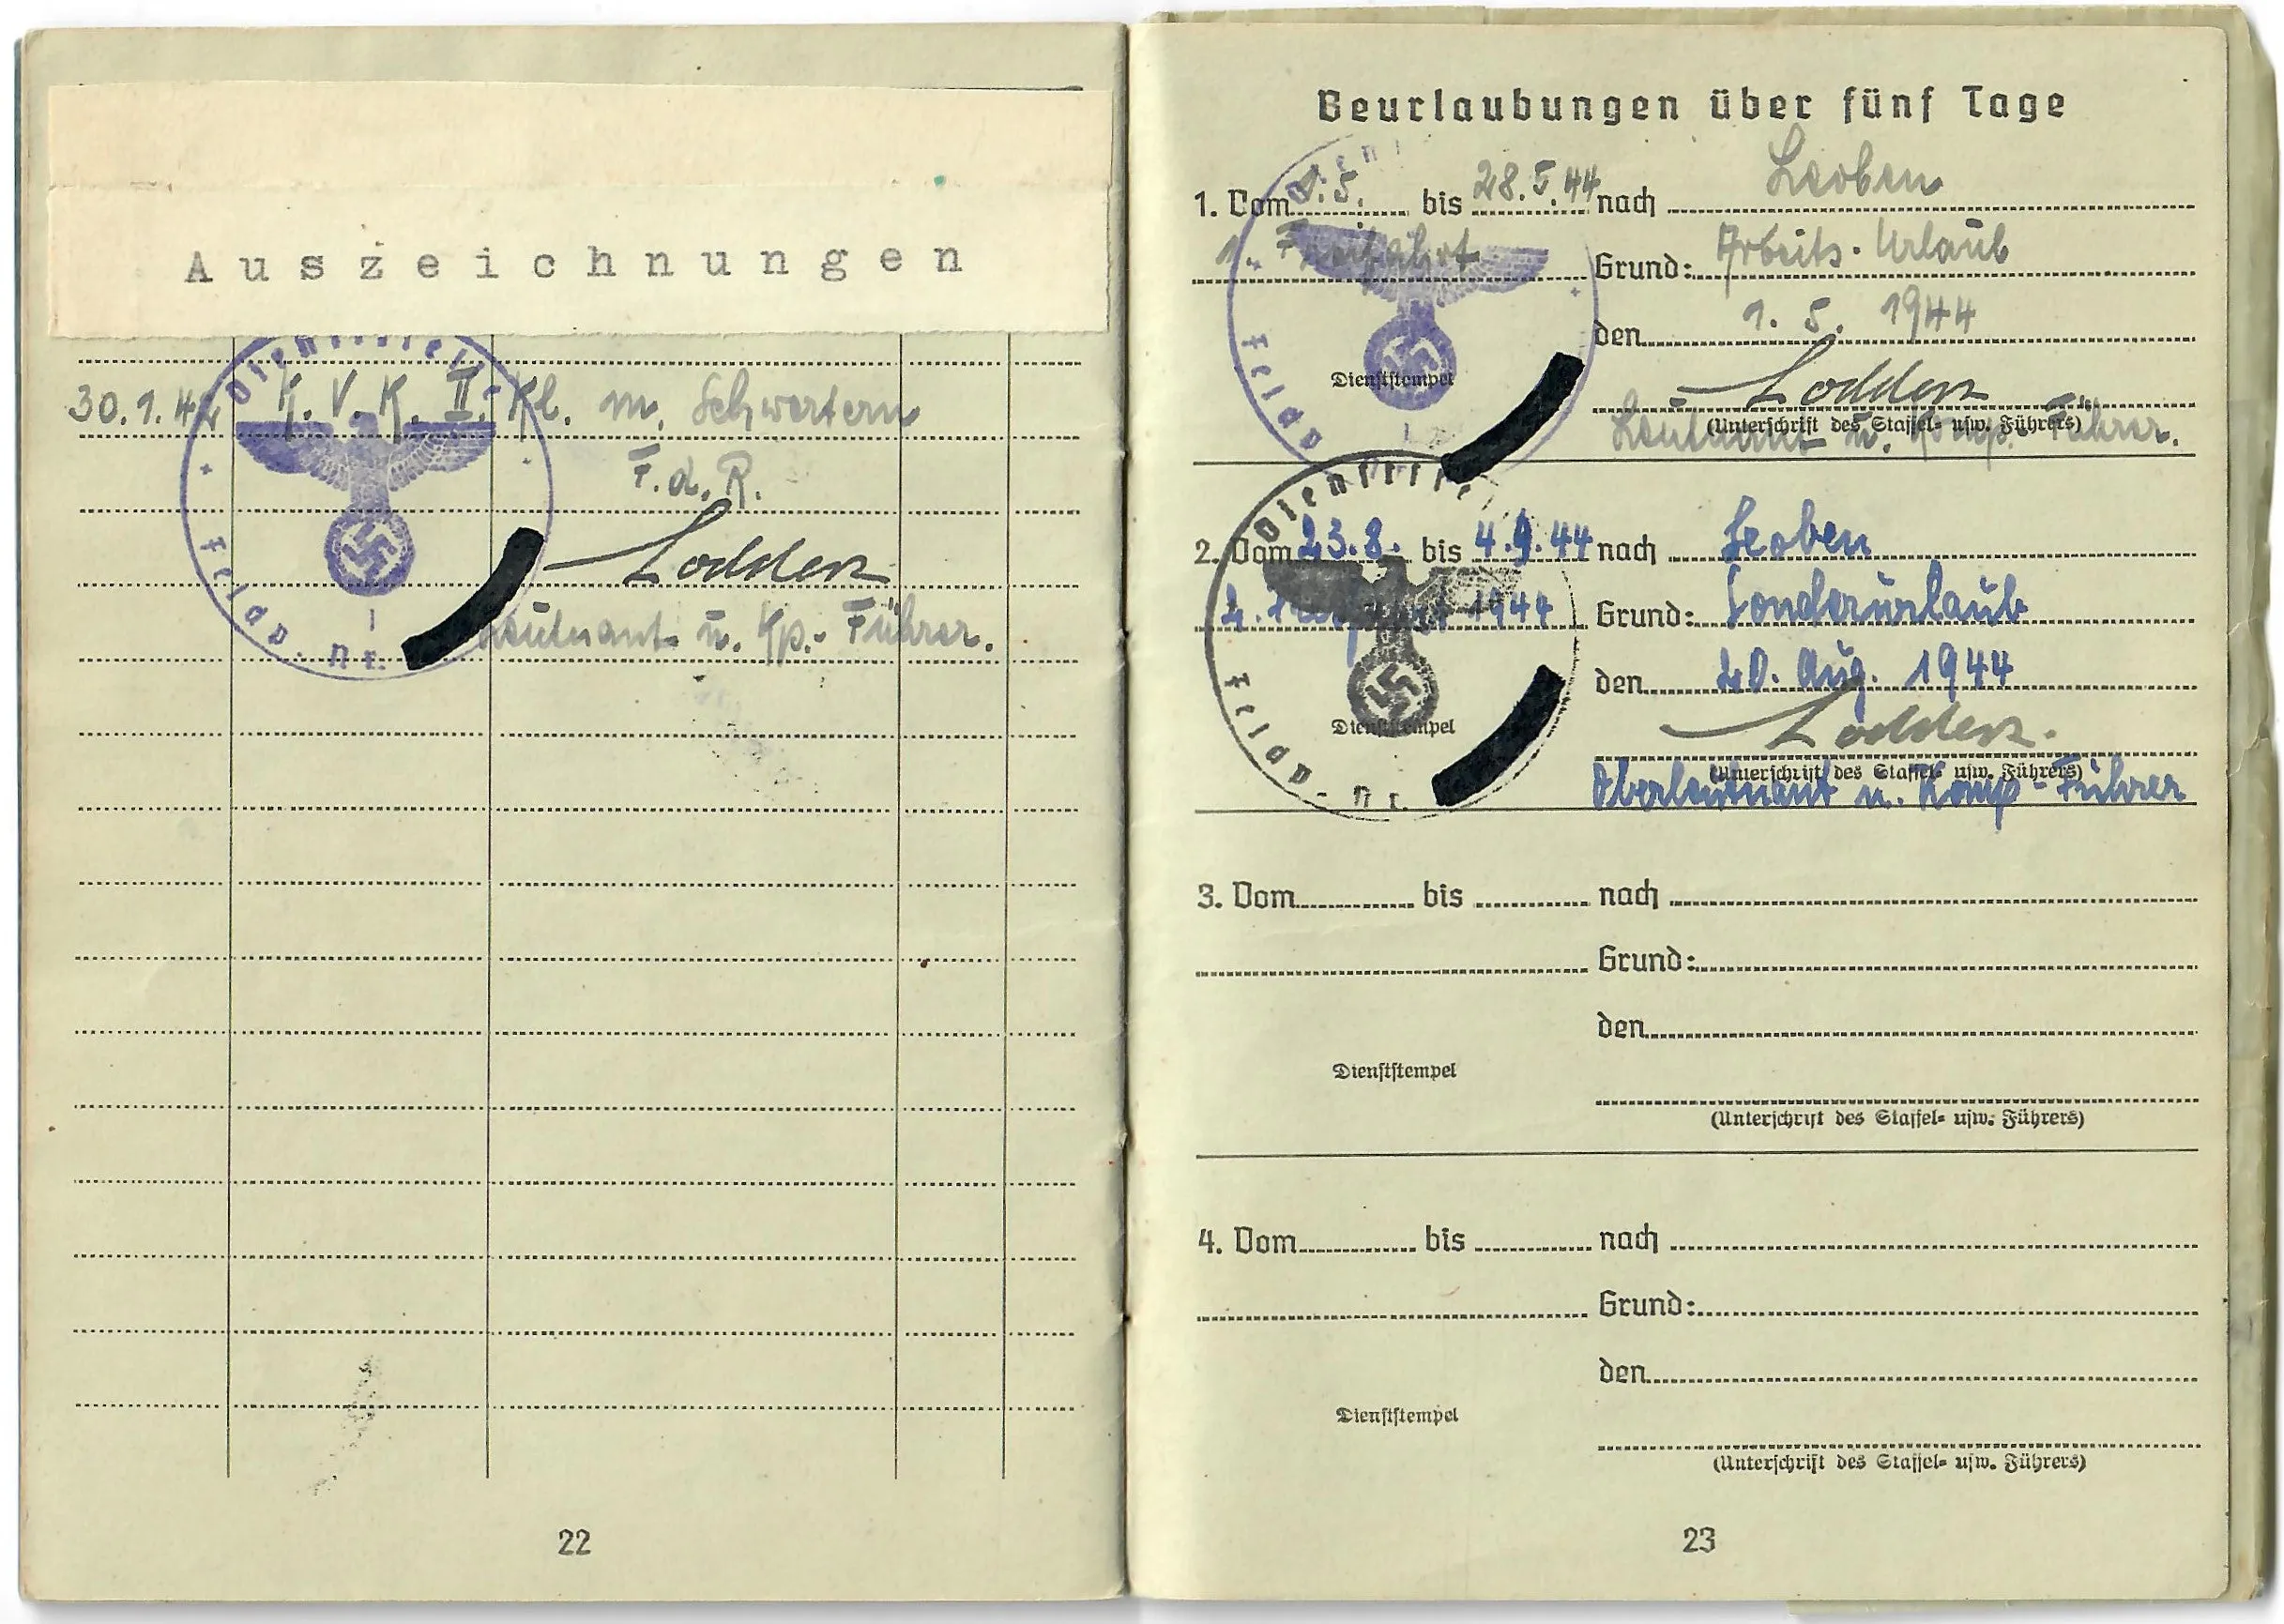 Auszeichnungen
Dienststelle
30.1.42 K. V. K. II. Kl. m. Schwertern
F. d. R.
Lodders
Feldp. Nr.
Leutnant u. Kp.-Führer.
22
Beurlaubungen über fünf Tage
1. Vom 1.5. bis 28.5.44 nach Leoben
1. Freifahrt Grund: Arbeits-Urlaub
den 1. 5. 1944
Dienststempel
Feldp
(Unterschrift des Staffel- usw. Führers)
Leutnant u. Komp. Führer.
Dienststelle
2. Vom 23.8. bis 4.9.44 nach Leoben
2. 1944 Grund: Sonderurlaub
den 20. Aug. 1944
Dienststempel
Lodders.
Feldp. Nr.
(Unterschrift des Staffel- usw. Führers)
Oberleutnant u. Komp-Führer
3. Vom bis nach
Grund:
den
Dienststempel
(Unterschrift des Staffel- usw. Führers)
4. Vom bis nach
Grund:
den
Dienststempel
(Unterschrift des Staffel- usw. Führers)
23